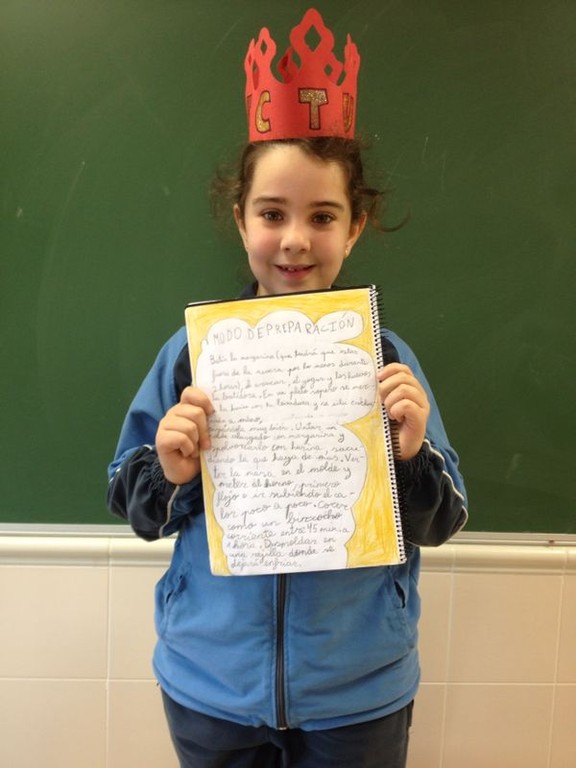 CTU
MODO DE PREPARACIÓN
Batir la margarina (que tendrá que estar
fuera de la nevera por lo menos durante
horas), el azúcar, el yogur y los huevos
la batidora. En un plato
la harina con la levadura y se
muy bien. Untar un
con margarina y
con harina, sacu-
la que haya de más. Ver-
ter la masa en el molde y
meter al horno, primero
flojo e ir subiendo el ca-
lor poco a poco. Cocer
como un bizcocho
corriente entre 45 min. a
1 hora. Desmoldar en
una rejilla donde se
dejará enfriar.